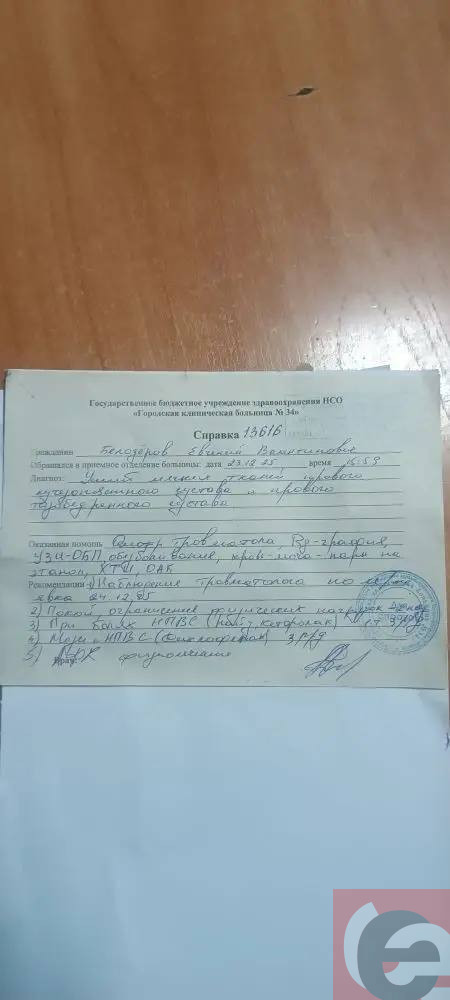 Государственное бюджетное учреждение здравоохранения НСО
«Городская клиническая больница № 34»
Справка 13616
гражданин Белозёров Евгений Валентинович
Обращался в приемное отделение больницы: дата 23.12.25, время 15:59
Диагноз: Ушиб мягких тканей правого
сустава и правого
тазобедренного сустава
Оказанная помощь Осмотр травматолога, Rg-графия,
УЗИ-ОБП, обезболивание, кровь-моча-пары на
этанол, ХТИ, ОАК
Рекомендации 1) Наблюдение травматолога по
явка 24.12.25
2) Покой, ограничение физических нагрузок
3) При болях НПВС (
4) Мази с НПВС (Диклофенак) 3 р/д
5) ЛФК физиолечение
Врач: